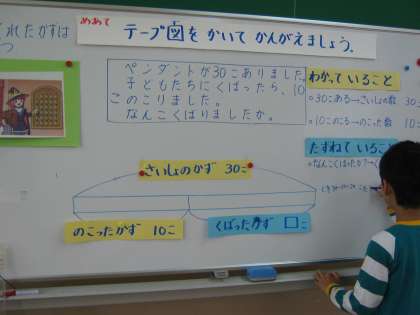 めあて
テープ図をかいて かんがえましょう。
くれたかずは
ペンダントが30こありました。
子どもたちにくばったら、10
このこりました。
なんこくばりましたか。
わかっていること
○30こある→さいしょの数 30こ
○10このこる→のこった数 10こ
たずねていること
○なんこくばったか?→く
さいしょのかず 30こ
のこったかず 10こ
くばったかず □こ